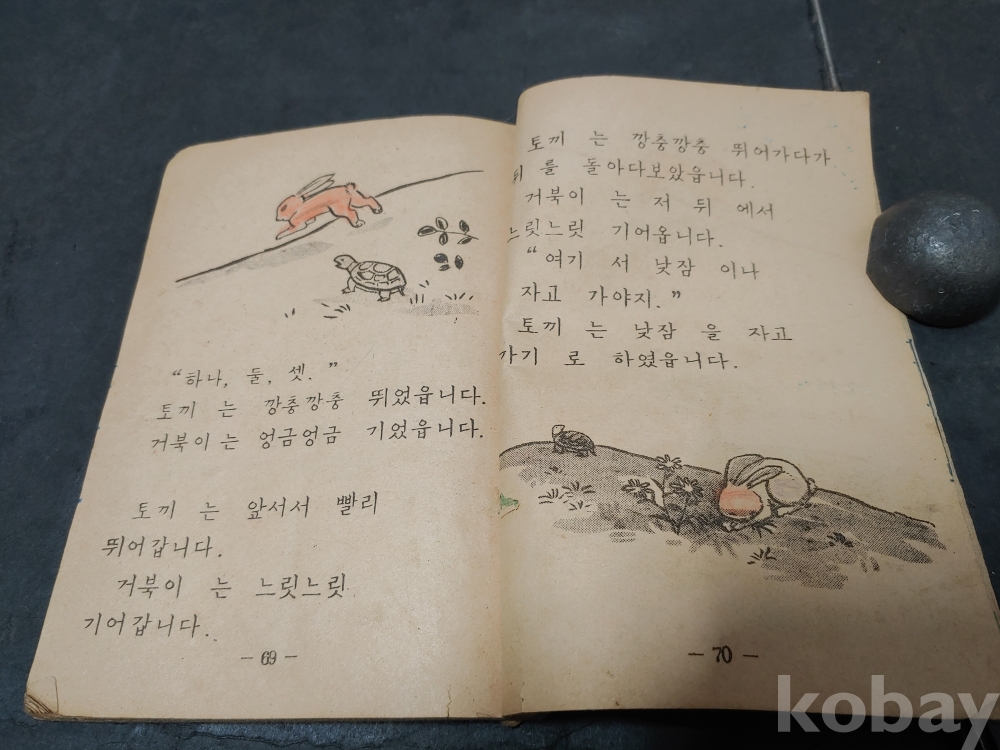 “하나, 둘, 셋. ”
토끼 는 깡충깡충 뛰었읍니다.
거북이 는 엉금엉금 기었읍니다.
토끼 는 앞서서 빨리
뛰어갑니다.
거북이 는 느릿느릿
기어갑니다.
— 69 —
토끼 는 깡충깡충 뛰어가다가
뒤 를 돌아다보았읍니다.
거북이 는 저 뒤 에서
느릿느릿 기어옵니다.
“여기 서 낮잠 이나
자고 가야지. ”
토끼 는 낮잠 을 자고
가기 로 하였읍니다.
— 70 —
kobay